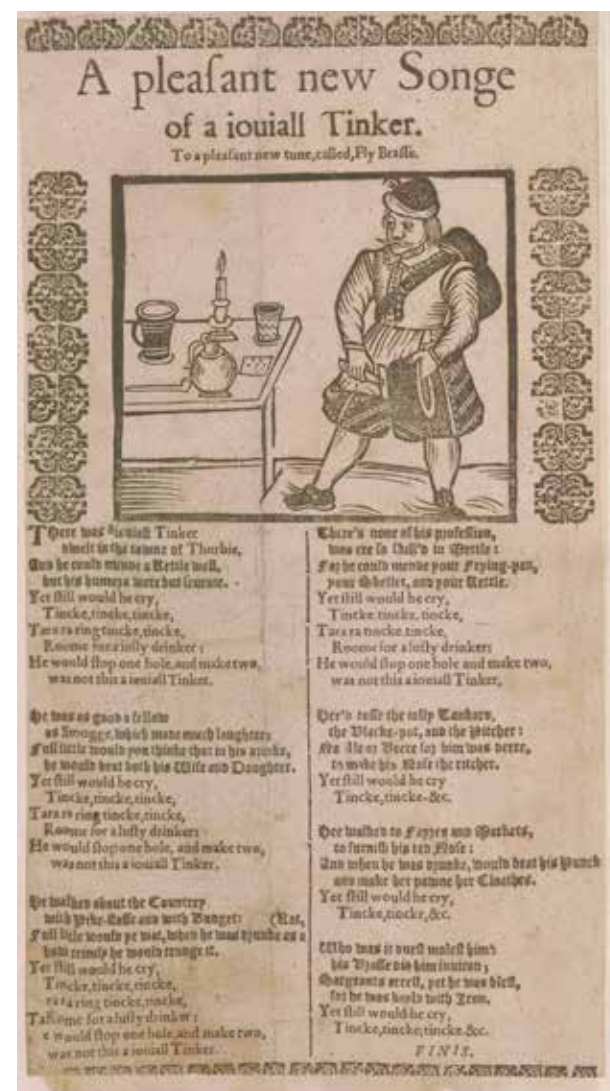 A pleaſant new Songe
of a iouiall Tinker.
To a pleaſant new tune, called, Fly Braſſe.
There was a iouiall Tinker
dwelt in the towne of Thurbie,
And he could mende a Kettle well,
but his humors were but ſcuruie.
Yet ſtill would he cry,
Tincke, tincke, tincke,
Tara ra ring tincke, tincke,
Roome for a luſty drinker:
He would ſtop one hole, and make two,
was not this a iouiall Tinker.
He was as good a fellow
as Smugge, which made much laughter;
Full little would you thinke that in his drinke,
he would beat both his Wife and Daughter.
Yet ſtill would he cry,
Tincke, tincke, tincke,
Tara ra ring tincke, tincke,
Roome for a luſty drinker:
He would ſtop one hole, and make two,
was not this a iouiall Tinker.
He walkes about the Countrey
with Pike-ſtaffe and with Budget: (Rat,
Full little would ye wot, when he was drunke as a
how trimly he would trudge it.
Yet ſtill would he cry,
Tincke, tincke, tincke,
ra ra ring tincke, tincke,
Ta Rome for a luſty drinker:
e would ſtop one hole, and make two,
was not this a iouiall Tinker.
There's none of his profeſſion,
was ere ſo skil'd in Mettle:
For he could mende your Frying-pan,
your Skellet, and your Kettle.
Yet ſtill would he cry,
Tincke, tincke, tincke,
Tara ra tincke, tincke,
Roome for a luſty drinker:
He would ſtop one hole and make two,
was not this a iouiall Tinker,
Hee'd toſſe the iolly Tankard,
the Blacke-pot, and the Pitcher:
No Ale or Beere for him was deere,
to make his Noſe the ritcher.
Yet ſtill would he cry
Tincke, tincke-&c.
Hee walked to Fayres and Markets,
to furniſh his red Noſe:
And when he was drunke, would beat his Punck
and make her pawne her Cloathes.
Yet ſtill would he cry,
Tincke, tincke, &c.
Who was it durſt moleſt him?
his Braſſe did him inuiron;
Sargeants arreſt, yet he was bleſt,
for he was with Iron.
Yet ſtill would he cry,
Tincke, tincke, tincke &c.
FINIS.